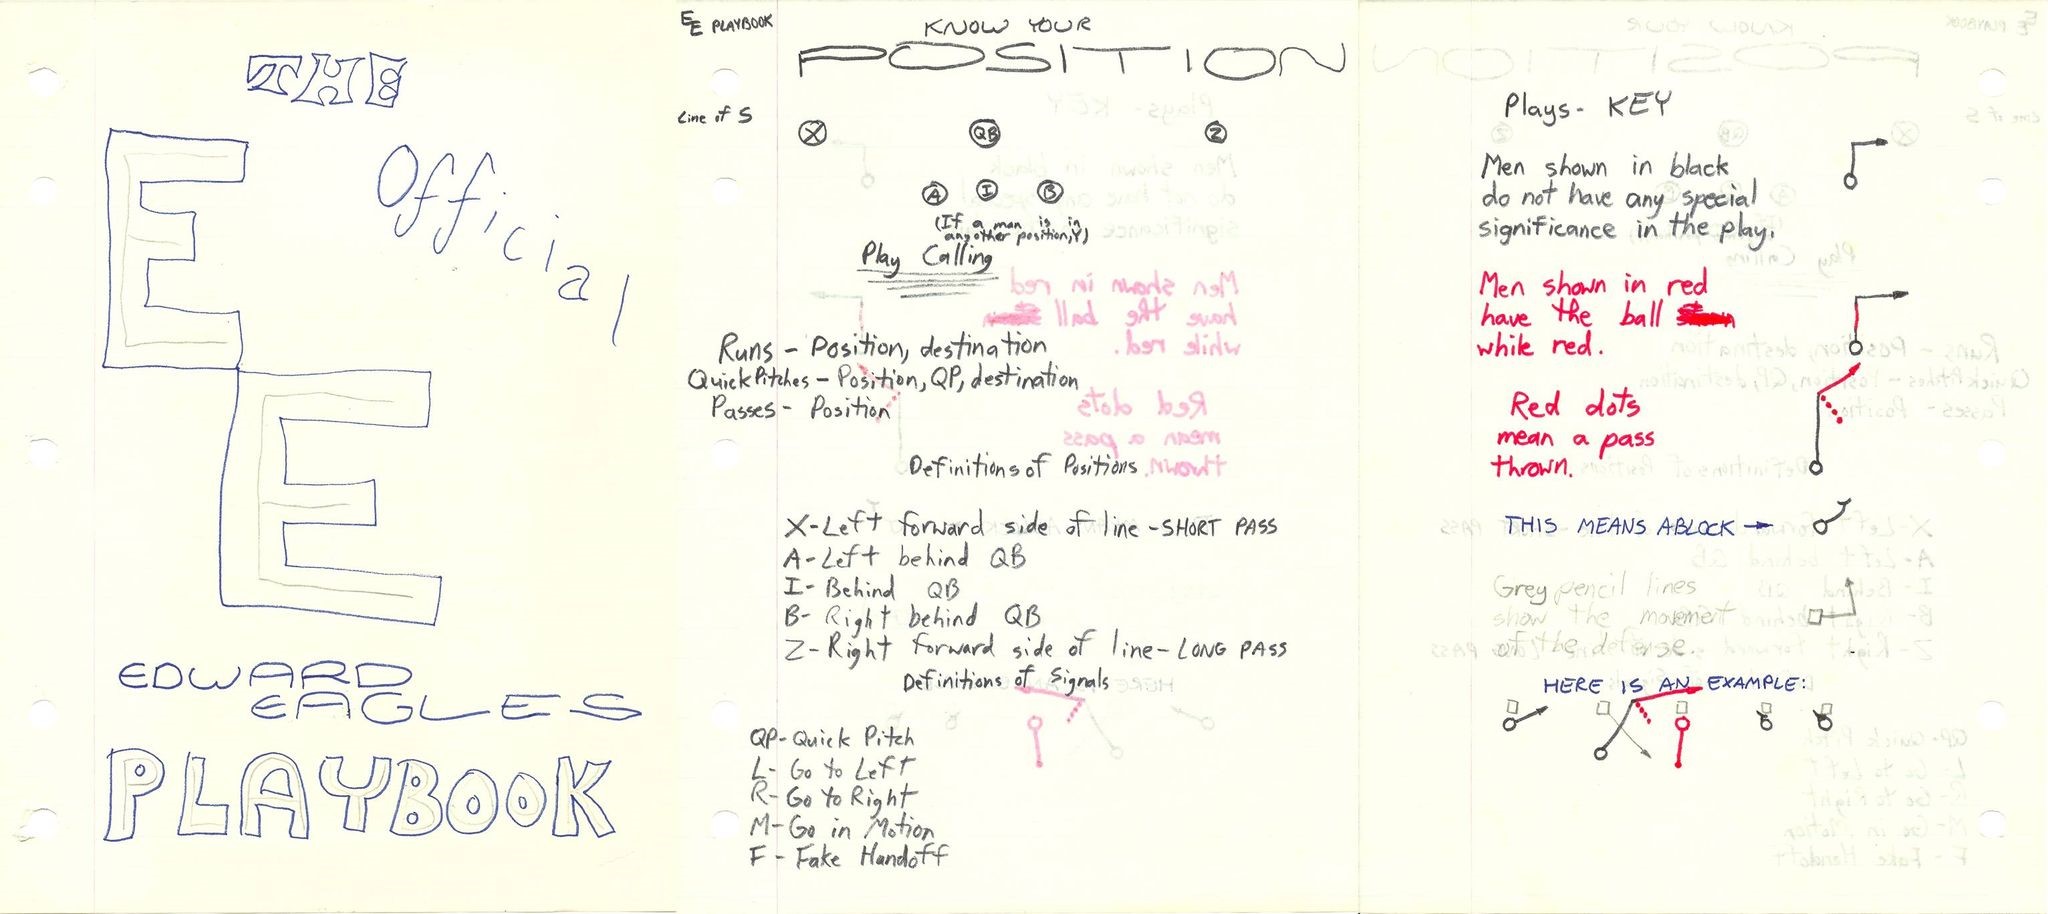 THE
E
Official
E
EDWARD
EAGLES
PLAYBOOK
EE PLAYBOOK
KNOW YOUR
POSITION
Line of S
X QB Z
A I B
(If a man is in
any other position, Y)
Play Calling
Runs - Position, destination
Quick Pitches - Position, QP, destination
Passes - Position
Definitions of Positions
X - Left forward side of line - SHORT PASS
A - Left behind QB
I - Behind QB
B - Right behind QB
Z - Right forward side of line - LONG PASS
Definitions of Signals
QP - Quick Pitch
L - Go to Left
R - Go to Right
M - Go in Motion
F - Fake Handoff
Plays - KEY
Men shown in black
do not have any special
significance in the play.
Men shown in red
have the ball
while red.
Red dots
mean a pass
thrown.
THIS MEANS A BLOCK
Grey pencil lines
show the movement
of the defense.
HERE IS AN EXAMPLE: